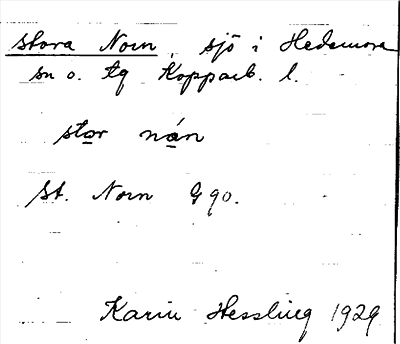 Stora Norn, sjö i Hedemora
sn o. tg Kopparb. l.
stor nån
St. Norn G 90.
Karin Hessling 1929